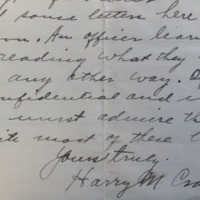 some letters here
. An officer lear
reading what they
any other way.
onfidential and i
must admire th
ite most of these l
Yours truly,
Harry M